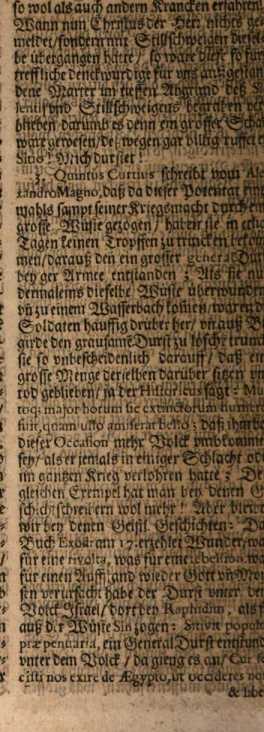 so wol als auch andern Krancken erfahren
Wann nun Christus der Herr nichts ge-
meldet / sondern mit Stillschweigen
be übergangen hätte / so wäre diese so für-
treffliche denckwürdige für uns außgestan-
dene Marter im tieffen Abgrund deß
lentij und Stillschweigens begraben ver-
blieben darumb es denn ein grosser Scha
wäre gewesen / deßwegen gar billig ruffet e
Sitio! Mich dürstet!
3. Quintus Curtius schreibt vom Ale-
xandro Magno, daß da dieser Potentat ein
mahls sampt seiner Kriegsmacht durch ein
grosse Wüste gezogen / haben sie in etlic
Tagen keinen Tropffen zu trincken bekom
men / darauß den ein grosser general Du
bey der Armee entstanden; Als sie nu
dermaleins dieselbe Wüste überwunden
vñ zu einem Wasserbach kom̃en / waren d
Soldaten häuffig drüber her / vñ auß B
girde den grausame Durst zu lösche trunck
sie so unbescheidenlich darauff / daß ein
grosse Menge derselben darüber sitzen un
tod geblieben / ja der Historicus sagt: Mu
toq; major horum sic extinctorum numer
fuit, quam ullo amiserat bello; daß ihm be
dieser Occasion mehr Volck umbkomme
sey / als er jemals in einiger Schlacht od
im gantzen Krieg verlohren hatte; De
gleichen Exempel hat man bey denen G
schichtschreibern wol mehr! Aber bleibe
wir bey denen Geistl. Geschichten: Da
Buch Exodi am 17. erzehlet Wunder, wa
für eine rivolta, was für eine rebellion, w
für einen Auffstand wieder Gott vñ Mo
sen verursacht habe der Durst unter de
Volck Israel / dort bey Raphidim, als s
auß der Wüste Sin zogen: Sitivit popul
præ penuria, ein General Durst entstund
unter dem Volck / da gieng es an / Cur fe
cisti nos exire de Ægypto, ut occideres no
& libe